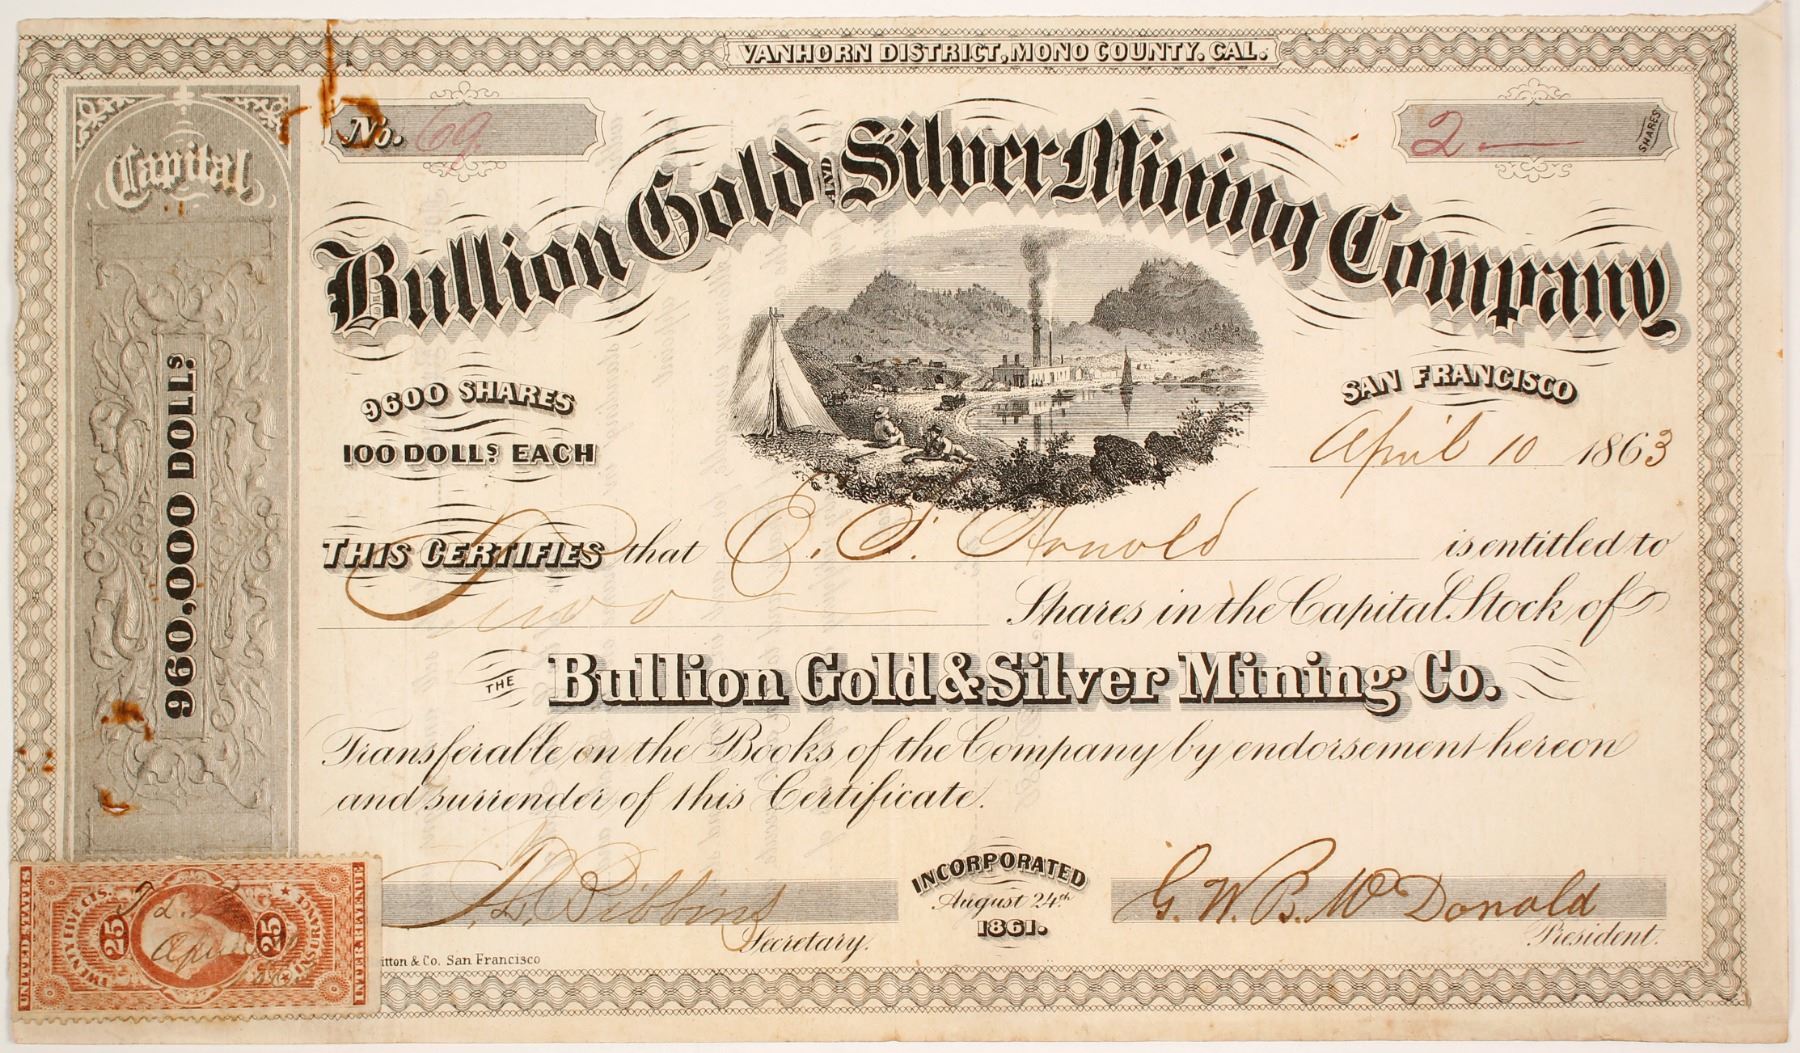 VANHORN DISTRICT, MONO COUNTY. CAL.
No. 69.
2 — SHARES
Capital
960,000 DOLLS.
Bullion Gold AND Silver Mining Company
9600 SHARES
100 DOLLS. EACH
SAN FRANCISCO
April 10 1863
THIS CERTIFIES that C. S. Arnold is entitled to
Two — Shares in the Capital Stock of
THE Bullion Gold & Silver Mining Co.
Transferable on the Books of the Company by endorsement hereon
and surrender of this Certificate.
INCORPORATED
August 24th
1861.
T. L. Bibbins
Secretary.
G. W. B. McDonald
President.
itton & Co. San Francisco
UNITED STATES
TWENTY FIVE CTS.
25
25
INSURANCE
INTER. REVENUE
April